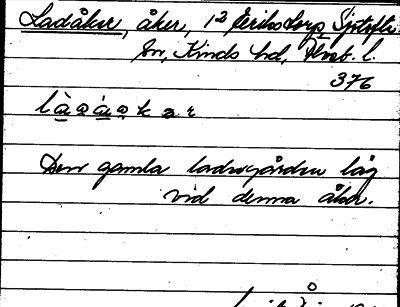 Ladåker, åker, 12 Eriksdorp, Sjötofta
sn, Kinds hd, Älvsb. l.
376
Den gamla ladugården låg
vid denna åker.